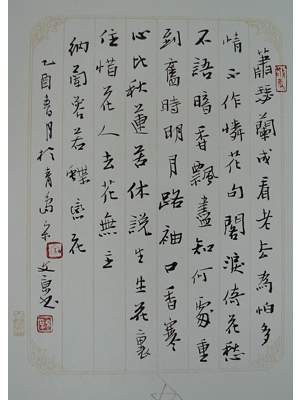 蕭瑟蘭成看老去為怕多
情不作憐花句閣淚倚花愁
不語暗香飄盡知何處重
到舊時明月路袖口香寒
心比秋蓮苦休說生生花裏
住惜花人去花無主
納蘭容若蝶恋花
乙酉春月於青島